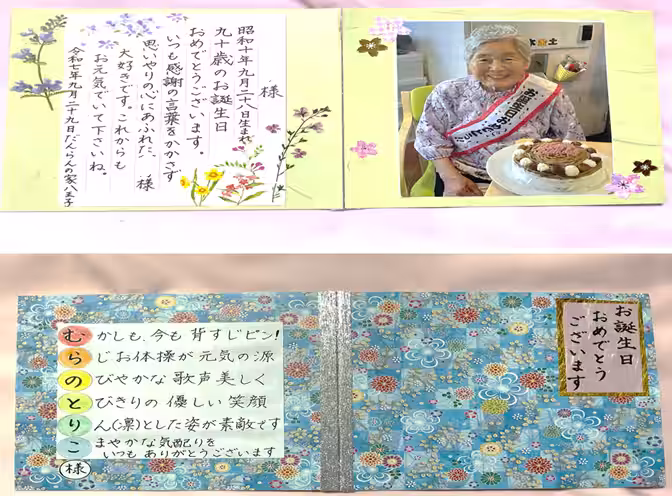 様
昭和十年九月二十八日生まれ
九十歳のお誕生日
おめでとうございます。
いつも感謝の言葉をかかさず
思いやりの心にあふれた 様
大好きです。これからも
お元気でいて下さいね。
令和七年九月二十九日だんらんの家八王子
お誕生日おめでとう
むかしも、今も背すじピン!
らじお体操が元気の源
のびやかな歌声美しく
とびきりの優しい笑顔
りん(凛)とした姿が素敵です
こまやかな気配りを
いつもありがとうございます
様
お誕生日
おめでとう
ございます